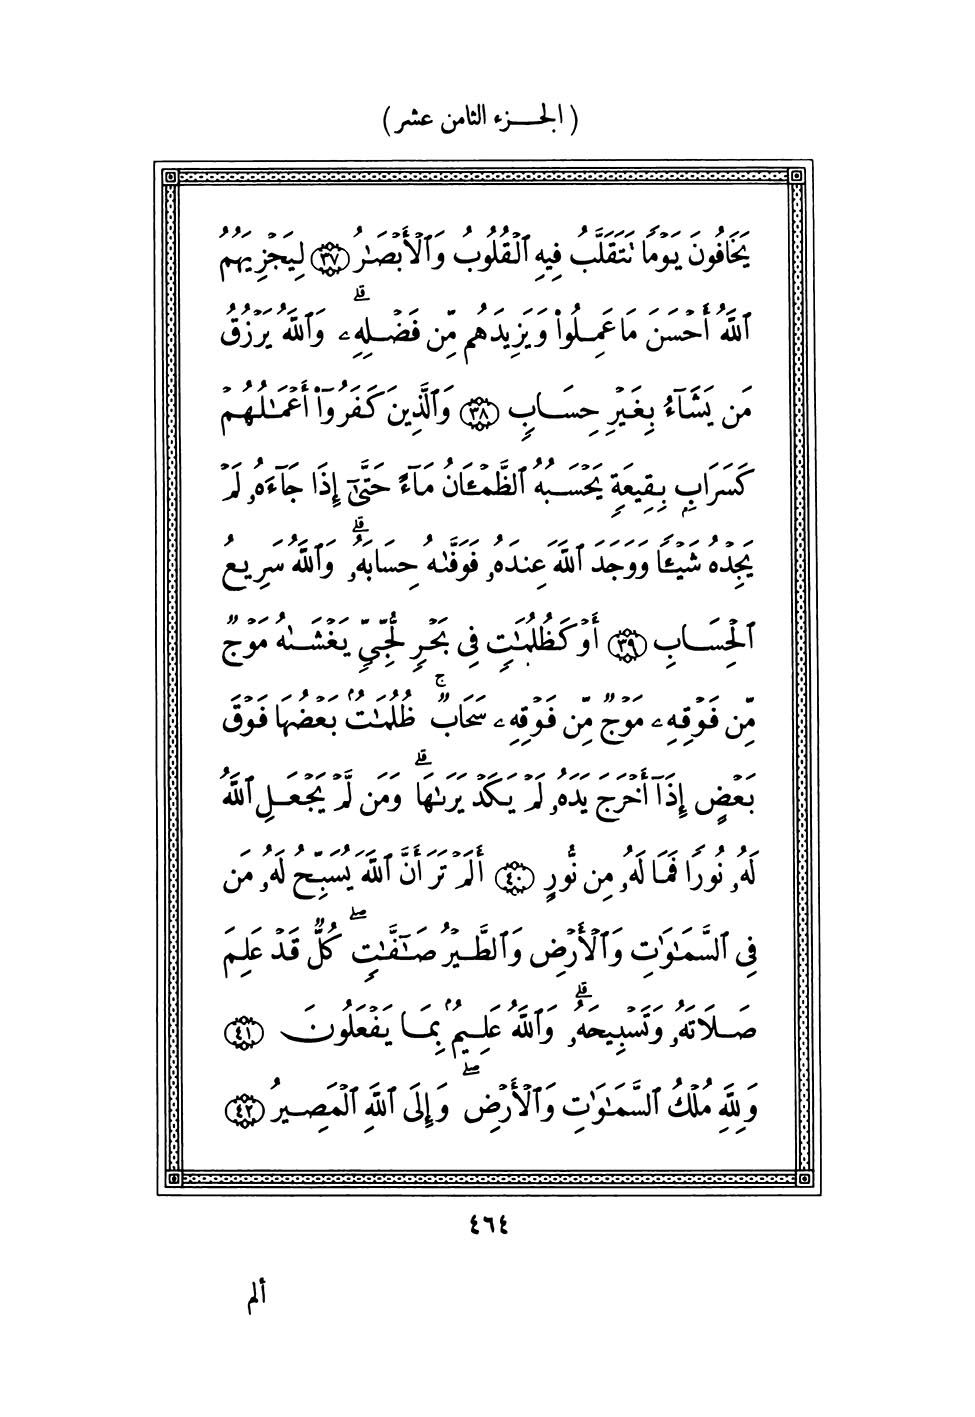 ( الجزء الثامن عشر )
يَخَافُونَ يَوْمًا تَتَقَلَّبُ فِيهِ ٱلْقُلُوبُ وَٱلْأَبْصَـٰرُ ٣٧ لِيَجْزِيَهُمُ
ٱللَّهُ أَحْسَنَ مَا عَمِلُوا۟ وَيَزِيدَهُم مِّن فَضْلِهِۦ ۗ وَٱللَّهُ يَرْزُقُ
مَن يَشَآءُ بِغَيْرِ حِسَابٍ ٣٨ وَٱلَّذِينَ كَفَرُوٓا۟ أَعْمَـٰلُهُمْ
كَسَرَابٍۭ بِقِيعَةٍ يَحْسَبُهُ ٱلظَّمْـَٔانُ مَآءً حَتَّىٰٓ إِذَا جَآءَهُۥ لَمْ
يَجِدْهُ شَيْـًٔا وَوَجَدَ ٱللَّهَ عِندَهُۥ فَوَفَّىٰهُ حِسَابَهُۥ ۗ وَٱللَّهُ سَرِيعُ
ٱلْحِسَابِ ٣٩ أَوْ كَظُلُمَـٰتٍ فِى بَحْرٍ لُّجِّىٍّ يَغْشَىٰهُ مَوْجٌ
مِّن فَوْقِهِۦ مَوْجٌ مِّن فَوْقِهِۦ سَحَابٌ ۚ ظُلُمَـٰتٌۢ بَعْضُهَا فَوْقَ
بَعْضٍ إِذَآ أَخْرَجَ يَدَهُۥ لَمْ يَكَدْ يَرَىٰهَا ۗ وَمَن لَّمْ يَجْعَلِ ٱللَّهُ
لَهُۥ نُورًا فَمَا لَهُۥ مِن نُّورٍ ٤٠ أَلَمْ تَرَ أَنَّ ٱللَّهَ يُسَبِّحُ لَهُۥ مَن
فِى ٱلسَّمَـٰوَٰتِ وَٱلْأَرْضِ وَٱلطَّيْرُ صَـٰٓفَّـٰتٍ ۖ كُلٌّ قَدْ عَلِمَ
صَلَاتَهُۥ وَتَسْبِيحَهُۥ ۗ وَٱللَّهُ عَلِيمٌۢ بِمَا يَفْعَلُونَ ٤١
وَلِلَّهِ مُلْكُ ٱلسَّمَـٰوَٰتِ وَٱلْأَرْضِ ۖ وَإِلَى ٱللَّهِ ٱلْمَصِيرُ ٤٢
٤٦٤
ألم